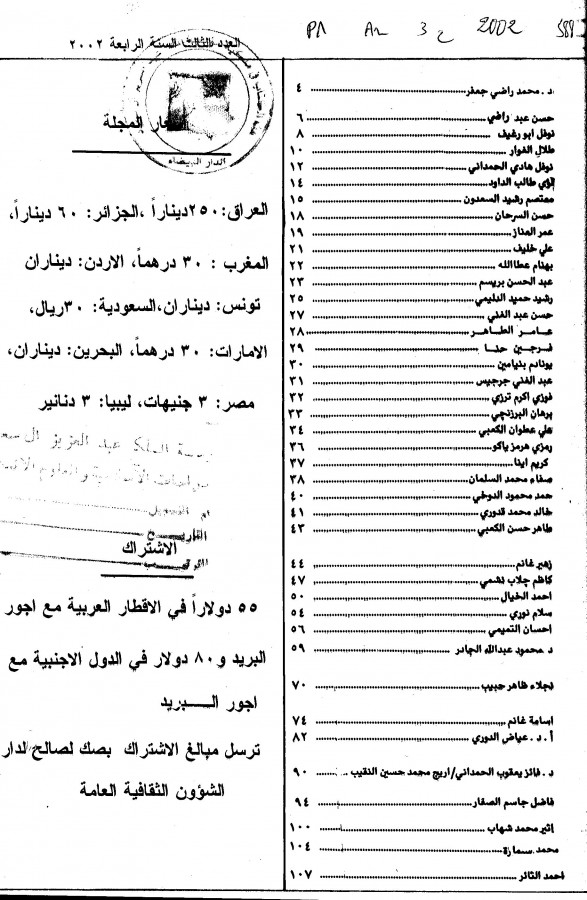 PP An 3 ج 2002 589
العدد الثالث السنة الرابعة ٢٠٠٢
د. محمد راضي جعفر ٤
حسن عبد راضي ٦
نوفل ابو رغيف ٨
طلال الغوار ١٠
نوفل هادي الحمداني ١٢
لؤي طالب الداود ١٤
معتصم رشيد السعدون ١٥
حسن السرحان ١٨
عمر العناز ١٩
علي خليف ٢١
بهنام عطاالله ٢٢
عبد الحسن بريسم ٢٣
رشيد حميد الدليمي ٢٥
حسن عبد الغني ٢٧
عامر الطاهر ٢٨
فرجين حنا ٢٩
يونادم بنيامين ٣٠
عبد الغني جرجيس ٣١
فوزي اكرم ترزي ٣٢
برهان البرزنجي ٣٣
علي عطوان الكعبي ٣٤
رمزي هرمز ياكو ٣٦
كريم اينا ٣٧
صفاء محمد السلمان ٣٨
حمد محمود الدوخي ٤٠
خالد محمد قدوري ٤١
طاهر حسن الكعبي ٤٣
زهير غانم ٤٤
كاظم جلاب نشمي ٤٧
احمد الخيال ٥٠
سلام نوري ٥٤
احسان التميمي ٥٦
د. محمود عبدالله الجادر ٥٩
نجلاء ظاهر حبيب ٧٠
اسامة غانم ٧٤
أ.د. عياض الدوري ٨٢
د. فائز يعقوب الحمداني/اريج محمد حسين النقيب ٩٠
فاضل جاسم الصفار ٩٤
اثير محمد شهاب ١٠٠
محمد سمارة ١٠٤
احمد الثائر ١٠٧
المجلة
الدار البيضاء
العراق: ٢٥٠ديناراً ،الجزائر: ٦٠ ديناراً،
المغرب : ٣٠ درهماً، الاردن: ديناران
تونس: ديناران،السعودية: ٣٠ريال،
الامارات: ٣٠ درهماً، البحرين: ديناران،
مصر: ٣ جنيهات، ليبيا: ٣ دنانير
الملك عبد العزيز آل
التاريخ
الاشتراك
٥٥ دولاراً في الاقطار العربية مع اجور
البريد و٨٠ دولار في الدول الاجنبية مع
اجور الـــبريد
ترسل مبالغ الاشتراك بصك لصالح لدار
الشؤون الثقافية العامة